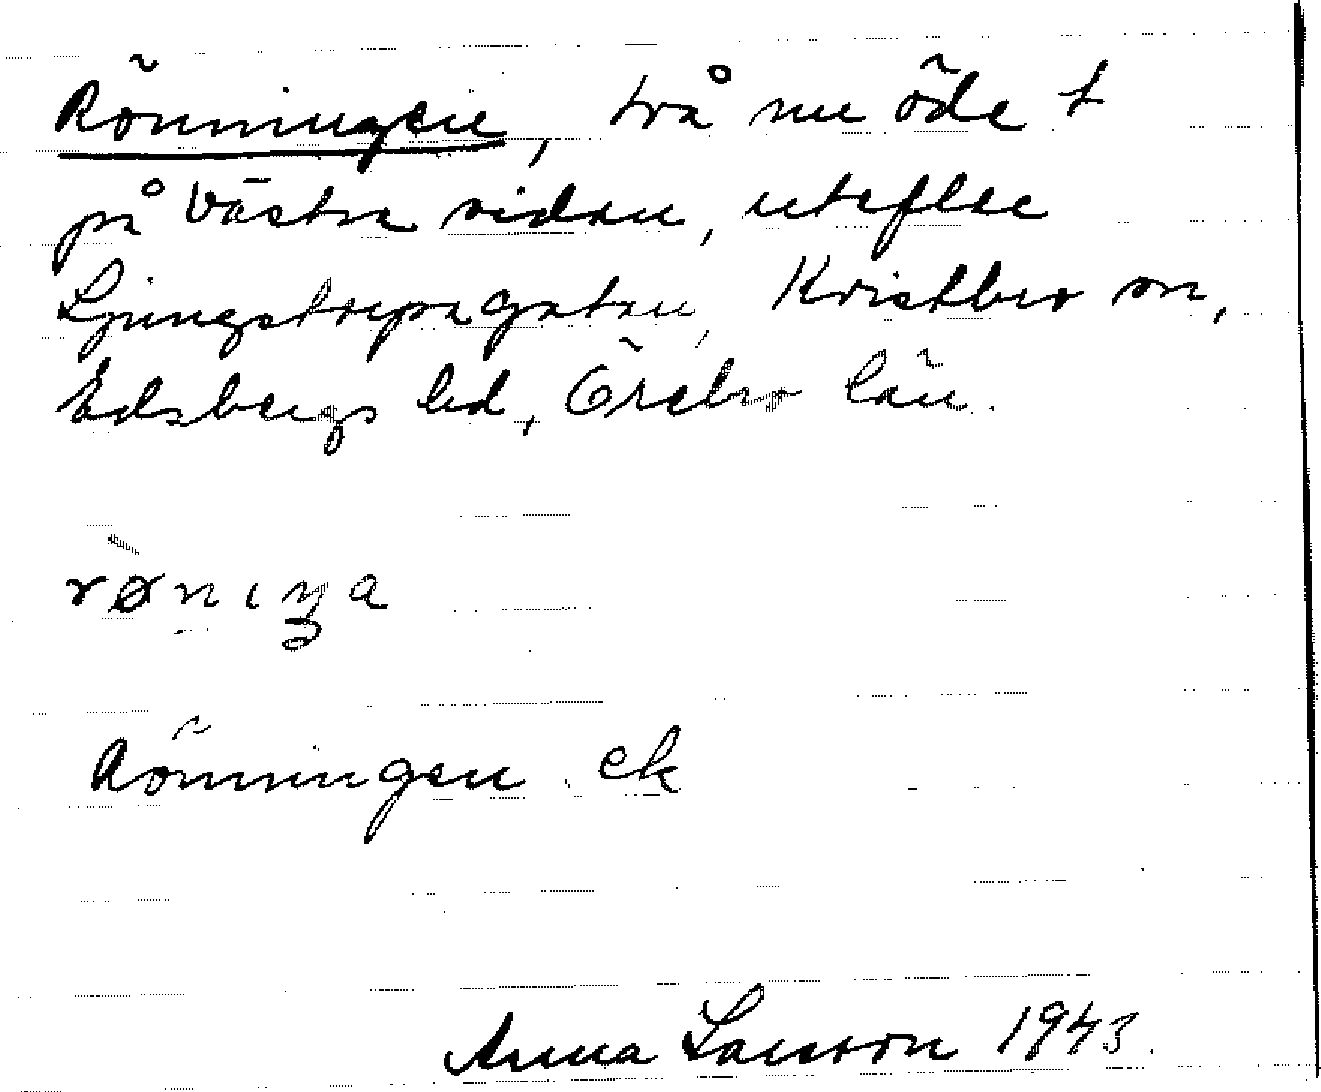 Rönningen, två nu öde t
på västra sidan, utefter
Ljungstorpagatan, Kvistbro sn,
Edsbergs hd, Örebro län.
rø̀niŋa
Rönningen ek
Anna Larsson 1943.